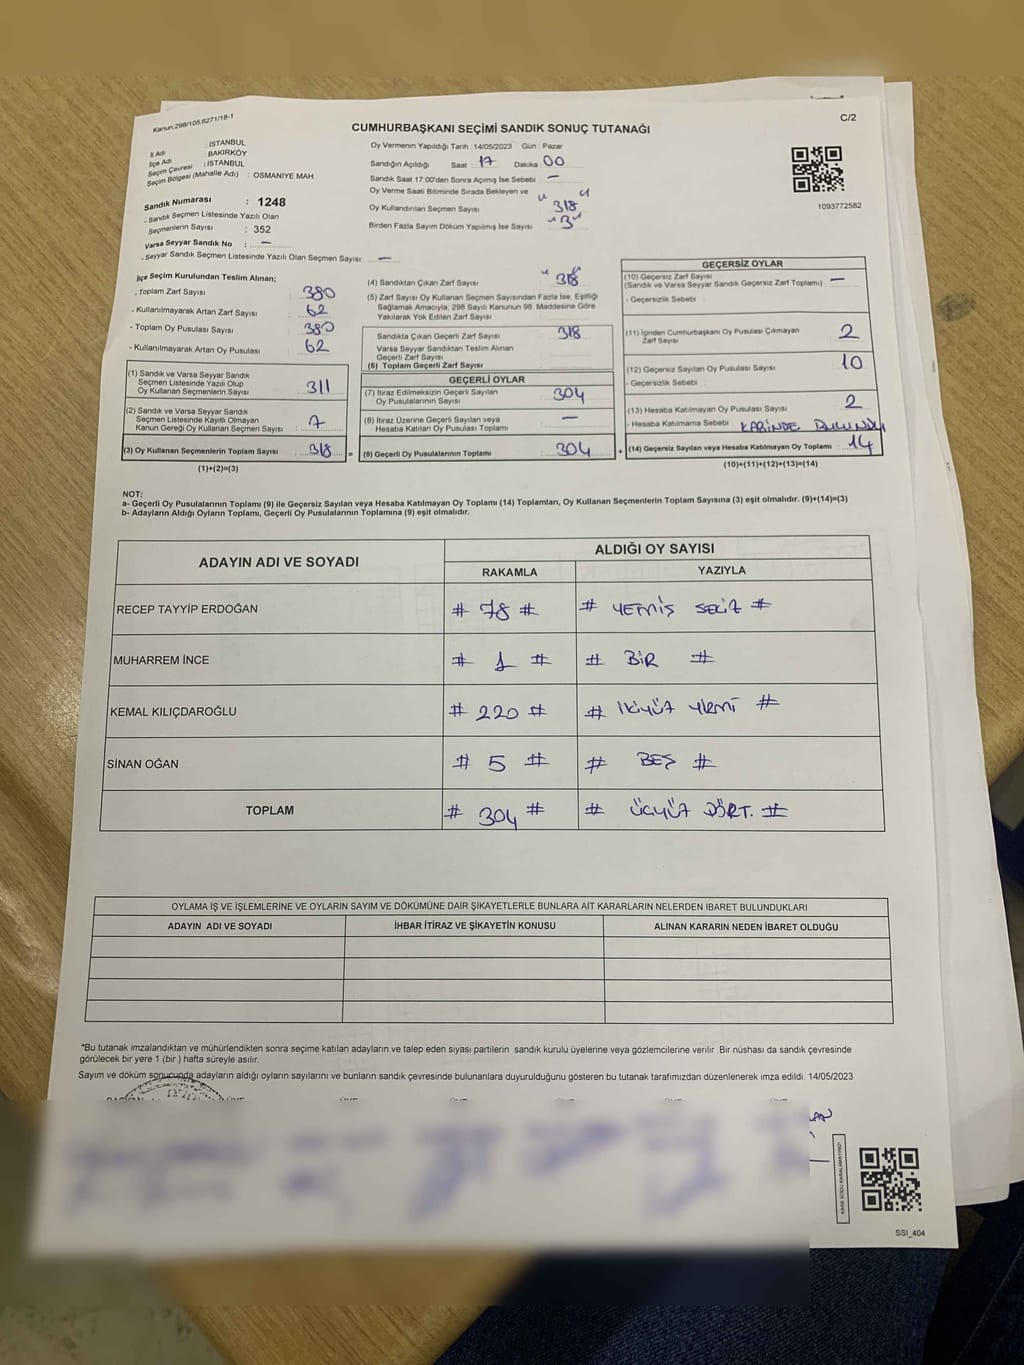 Kanun:298/105,6271/18-1
C/2
CUMHURBAŞKANI SEÇİMİ SANDIK SONUÇ TUTANAĞI
İl Adı : İSTANBUL
İlçe Adı : BAKIRKÖY
Seçim Çevresi : İSTANBUL
Seçim Bölgesi (Mahalle Adı) : OSMANİYE MAH.
Sandık Numarası : 1248
- Sandık Seçmen Listesinde Yazılı Olan
Seçmenlerin Sayısı : 352
Varsa Seyyar Sandık No : —
- Seyyar Sandık Seçmen Listesinde Yazılı Olan Seçmen Sayısı : —
Oy Vermenin Yapıldığı Tarih : 14/05/2023 Gün : Pazar
Sandığın Açıldığı Saat : 17 Dakika : 00
Sandık Saat 17:00'den Sonra Açımış İse Sebebi : —
Oy Verme Saati Bitiminde Sırada Bekleyen ve
Oy Kullandırılan Seçmen Sayısı : 318
Birden Fazla Sayım Döküm Yapılmış İse Sayısı : "3"
1093772582
İlçe Seçim Kurulundan Teslim Alınan;
- Toplam Zarf Sayısı : 380
- Kullanılmayarak Artan Zarf Sayısı : 62
- Toplam Oy Pusulası Sayısı : 380
- Kullanılmayarak Artan Oy Pusulası : 62
(1) Sandık ve Varsa Seyyar Sandık
Seçmen Listesinde Yazılı Olup
Oy Kullanan Seçmenlerin Sayısı : 311
(2) Sandık ve Varsa Seyyar Sandık
Seçmen Listesinde Kayıtlı Olmayan
Kanun Gereği Oy Kullanan Seçmen Sayısı : 7
(3) Oy Kullanan Seçmenlerin Toplam Sayısı : 318
(1)+(2)=(3)
(4) Sandıktan Çıkan Zarf Sayısı : "318"
(5) Zarf Sayısı Oy Kullanan Seçmen Sayısından Fazla İse, Eşitliği
Sağlamak Amacıyla, 298 Sayılı Kanunun 98. Maddesine Göre
Yakılarak Yok Edilen Zarf Sayısı :
Sandıkta Çıkan Geçerli Zarf Sayısı : 318
Varsa Seyyar Sandıktan Teslim Alınan
Geçerli Zarf Sayısı
(6) Toplam Geçerli Zarf Sayısı
GEÇERLİ OYLAR
(7) İtiraz Edilmeksizin Geçerli Sayılan
Oy Pusulalarının Sayısı : 304
(8) İtiraz Üzerine Geçerli Sayılan veya
Hesaba Katılan Oy Pusulası Toplamı : —
= (9) Geçerli Oy Pusulalarının Toplamı : 304
GEÇERSİZ OYLAR
(10) Geçersiz Zarf Sayısı
(Sandık ve Varsa Seyyar Sandık Geçersiz Zarf Toplamı) : —
- Geçersizlik Sebebi :
(11) İçinden Cumhurbaşkanı Oy Pusulası Çıkmayan
Zarf Sayısı : 2
(12) Geçersiz Sayılan Oy Pusulası Sayısı : 10
- Geçersizlik Sebebi :
(13) Hesaba Katılmayan Oy Pusulası Sayısı : 2
- Hesaba Katılmama Sebebi : KABİNDE BULUNDU
+ (14) Geçersiz Sayılan veya Hesaba Katılmayan Oy Toplamı : 14
(10)+(11)+(12)+(13)=(14)
NOT:
a- Geçerli Oy Pusulalarının Toplamı (9) ile Geçersiz Sayılan veya Hesaba Katılmayan Oy Toplamı (14) Toplamları, Oy Kullanan Seçmenlerin Toplam Sayısına (3) eşit olmalıdır. (9)+(14)=(3)
b- Adayların Aldığı Oyların Toplamı, Geçerli Oy Pusulalarının Toplamına (9) eşit olmalıdır.
ADAYIN ADI VE SOYADI
ALDIĞI OY SAYISI
RAKAMLA YAZIYLA
RECEP TAYYİP ERDOĞAN # 78 # # YETMİŞ SEKİZ #
MUHARREM İNCE # 1 # # BİR #
KEMAL KILIÇDAROĞLU # 220 # # İKİYÜZ YİRMİ #
SİNAN OĞAN # 5 # # BEŞ #
TOPLAM # 304 # # ÜÇYÜZ DÖRT. #
OYLAMA İŞ VE İŞLEMLERİNE VE OYLARIN SAYIM VE DÖKÜMÜNE DAİR ŞİKAYETLERLE BUNLARA AİT KARARLARIN NELERDEN İBARET BULUNDUKLARI
ADAYIN ADI VE SOYADI İHBAR İTİRAZ VE ŞİKAYETİN KONUSU ALINAN KARARIN NEDEN İBARET OLDUĞU
*Bu tutanak imzalandıktan ve mühürlendikten sonra seçime katılan adayların ve talep eden siyasi partilerin sandık kurulu üyelerine veya gözlemcilerine verilir .Bir nüshası da sandık çevresinde
görülecek bir yere 1 (bir ) hafta süreyle asılır.
Sayım ve döküm sonucunda adayların aldığı oyların sayılarını ve bunların sandık çevresinde bulunanlara duyurulduğunu gösteren bu tutanak tarafımızdan düzenlenerek imza edildi. 14/05/2023
KARE KODU KARALAMAYINIZ!
SSI_404